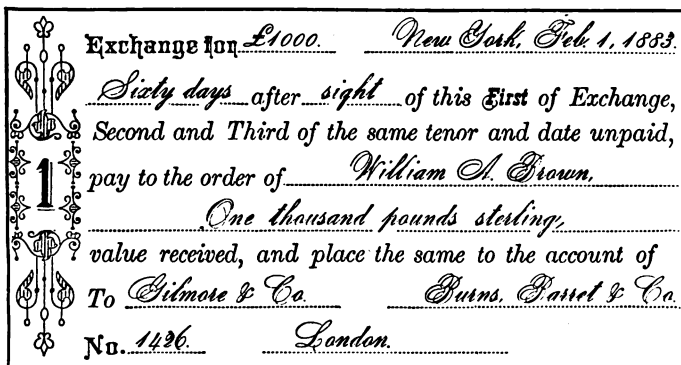 Exchange for £1000. New York, Feb. 1, 1883.
Sixty days after sight of this First of Exchange,
Second and Third of the same tenor and date unpaid,
1 pay to the order of William A. Brown,
One thousand pounds sterling,
value received, and place the same to the account of
To Gilmore & Co. Burns, Parret & Co.
No. 1426. London.